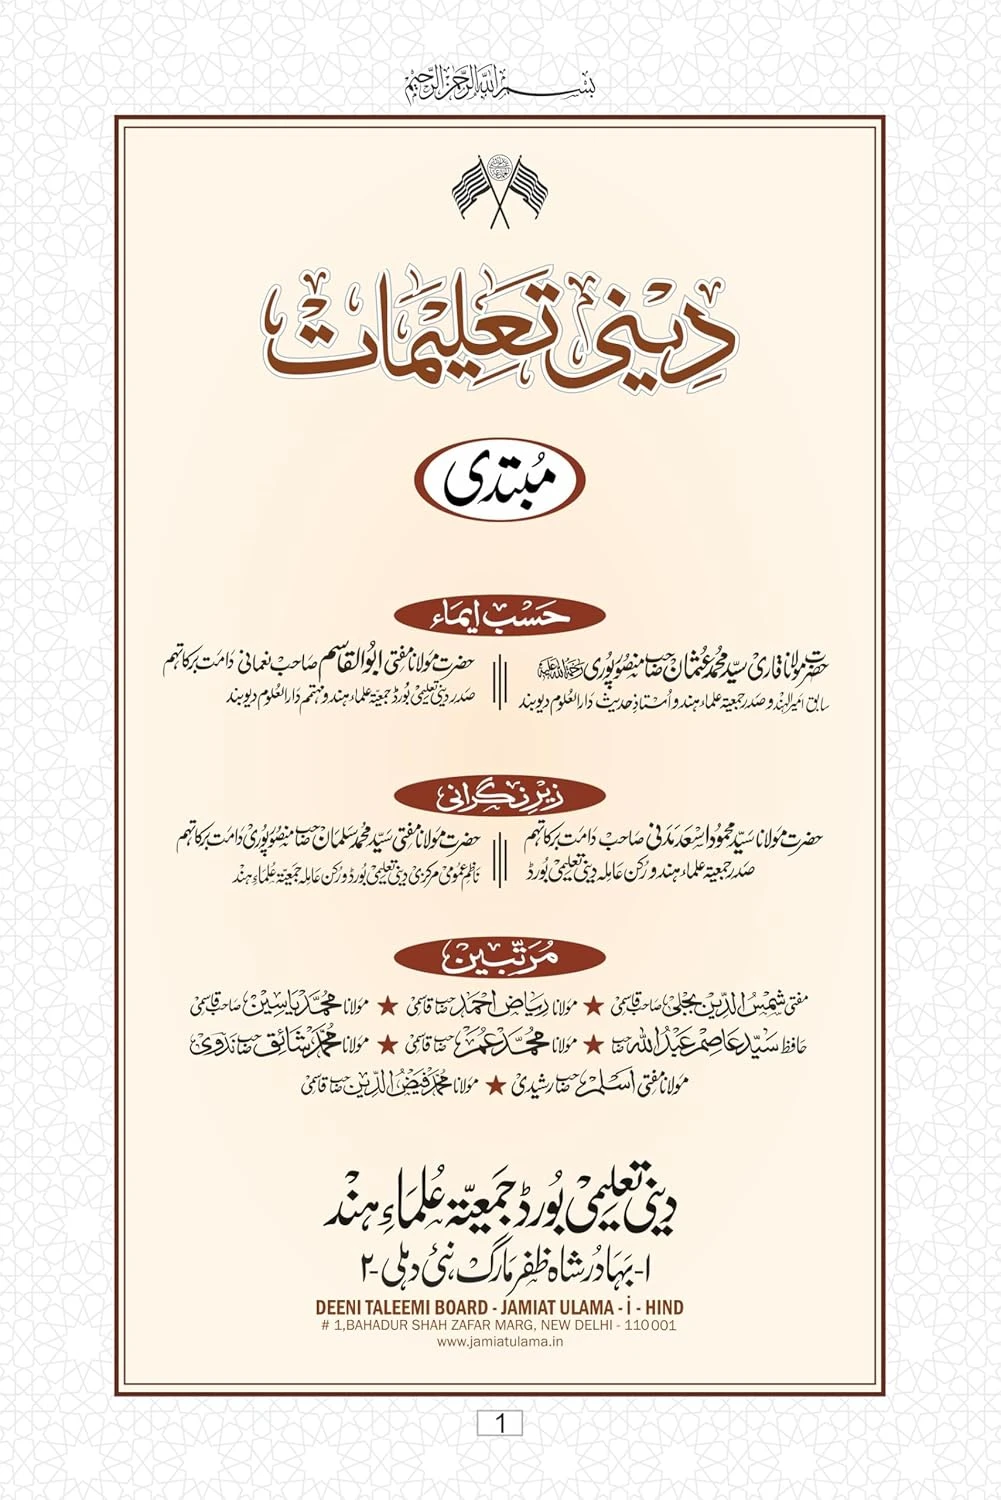 بسم اللہ الرحمن الرحیم
دِینی تعلِیمات
مُبتدی
حَسْبِ ایمَاء
حضرت مولانا قاری سیّد محمد عُثمان صاحب منصُور پُوری رحمۃ اللہ علیہ
سابق امیر الہند و صدر جمعیۃ علماء ہند و اُستاذِ حدیث دَارُ العلُوم دیوبند
حضرت مولانا مفتی ابُو القَاسِم صاحب نعمانی دَامت برکاتہم
صدر دینی تعلیمی بورڈ جمعیۃ علماء ہند و مہتمم دَارُ العلُوم دیوبند
زیرِ نگرانی
حضرت مولانا سیّد محمُود اسعد مَدَنی صاحب دَامت برکاتہم
صدر جمعیۃ علماء ہند و رُکن عاملہ دینی تعلیمی بورڈ
حضرت مولانا مفتی سیّد محمد سلمان صاحب منصُور پُوری دَامت برکاتہم
ناظمِ عمُومی مرکزی دینی تعلیمی بورڈ و رکن عاملہ جمعیۃ علماءِ ہند
مُرَتّبین
مفتی شمسُ الدّین بجلی صاحب قاسمی ★ مولانا ریاض احمد صاحب قاسمی ★ مولانا محمّد یَاسِین صاحب قاسمی
حافظ سیّد عاصم عبدُ اللہ صاحب ★ مولانا محمّد عُمَر صاحب قاسمی ★ مولانا محمّد شائق صاحب ندوی
مولانا مفتی اسلم صاحب رشیدی ★ مولانا محمّد فیضُ الدّین صاحب قاسمی
دینی تعلیمی بُورڈ جَمعیّۃ عُلمَاءِ ہند
۱- بہَادُر شاہ ظفر مَارگ، نئی دہلی -۲
DEENI TALEEMI BOARD - JAMIAT ULAMA - i - HIND
# 1,BAHADUR SHAH ZAFAR MARG, NEW DELHI - 110 001
www.jamiatulama.in
1